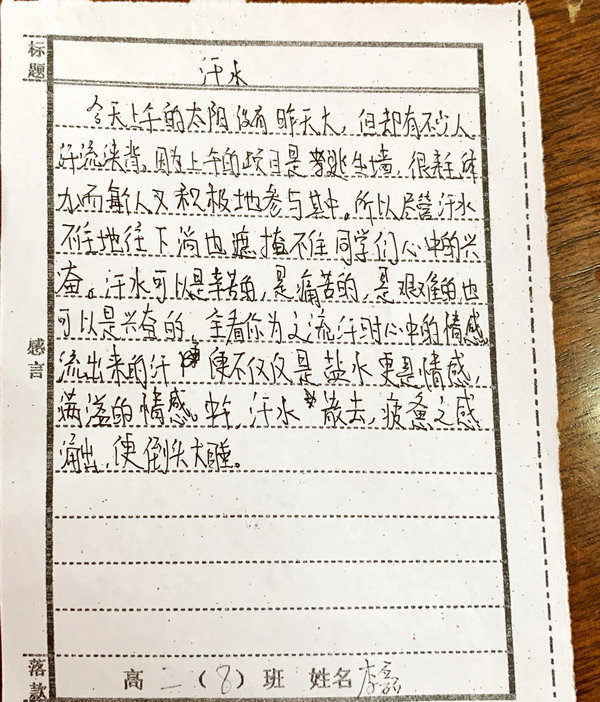 标题
汗水
今天上午的太阳没有昨天大，但却有不少人
汗流浃背。因为上午的项目是考逃生墙，很耗体
力而每人又积极地参与其中。所以尽管汗水
不住地往下淌也掩不住同学们心中的兴
奋。汗水可以是辛苦的，是痛苦的，是艰难的也
可以是兴奋的，全看你为之流汗时心中的情感。
流出来的汗便不仅仅是盐水更是情感，
满溢的情感。汗水散去，疲惫之感
涌出，便倒头大睡。
感言
落款
高二（8）班 姓名 李磊